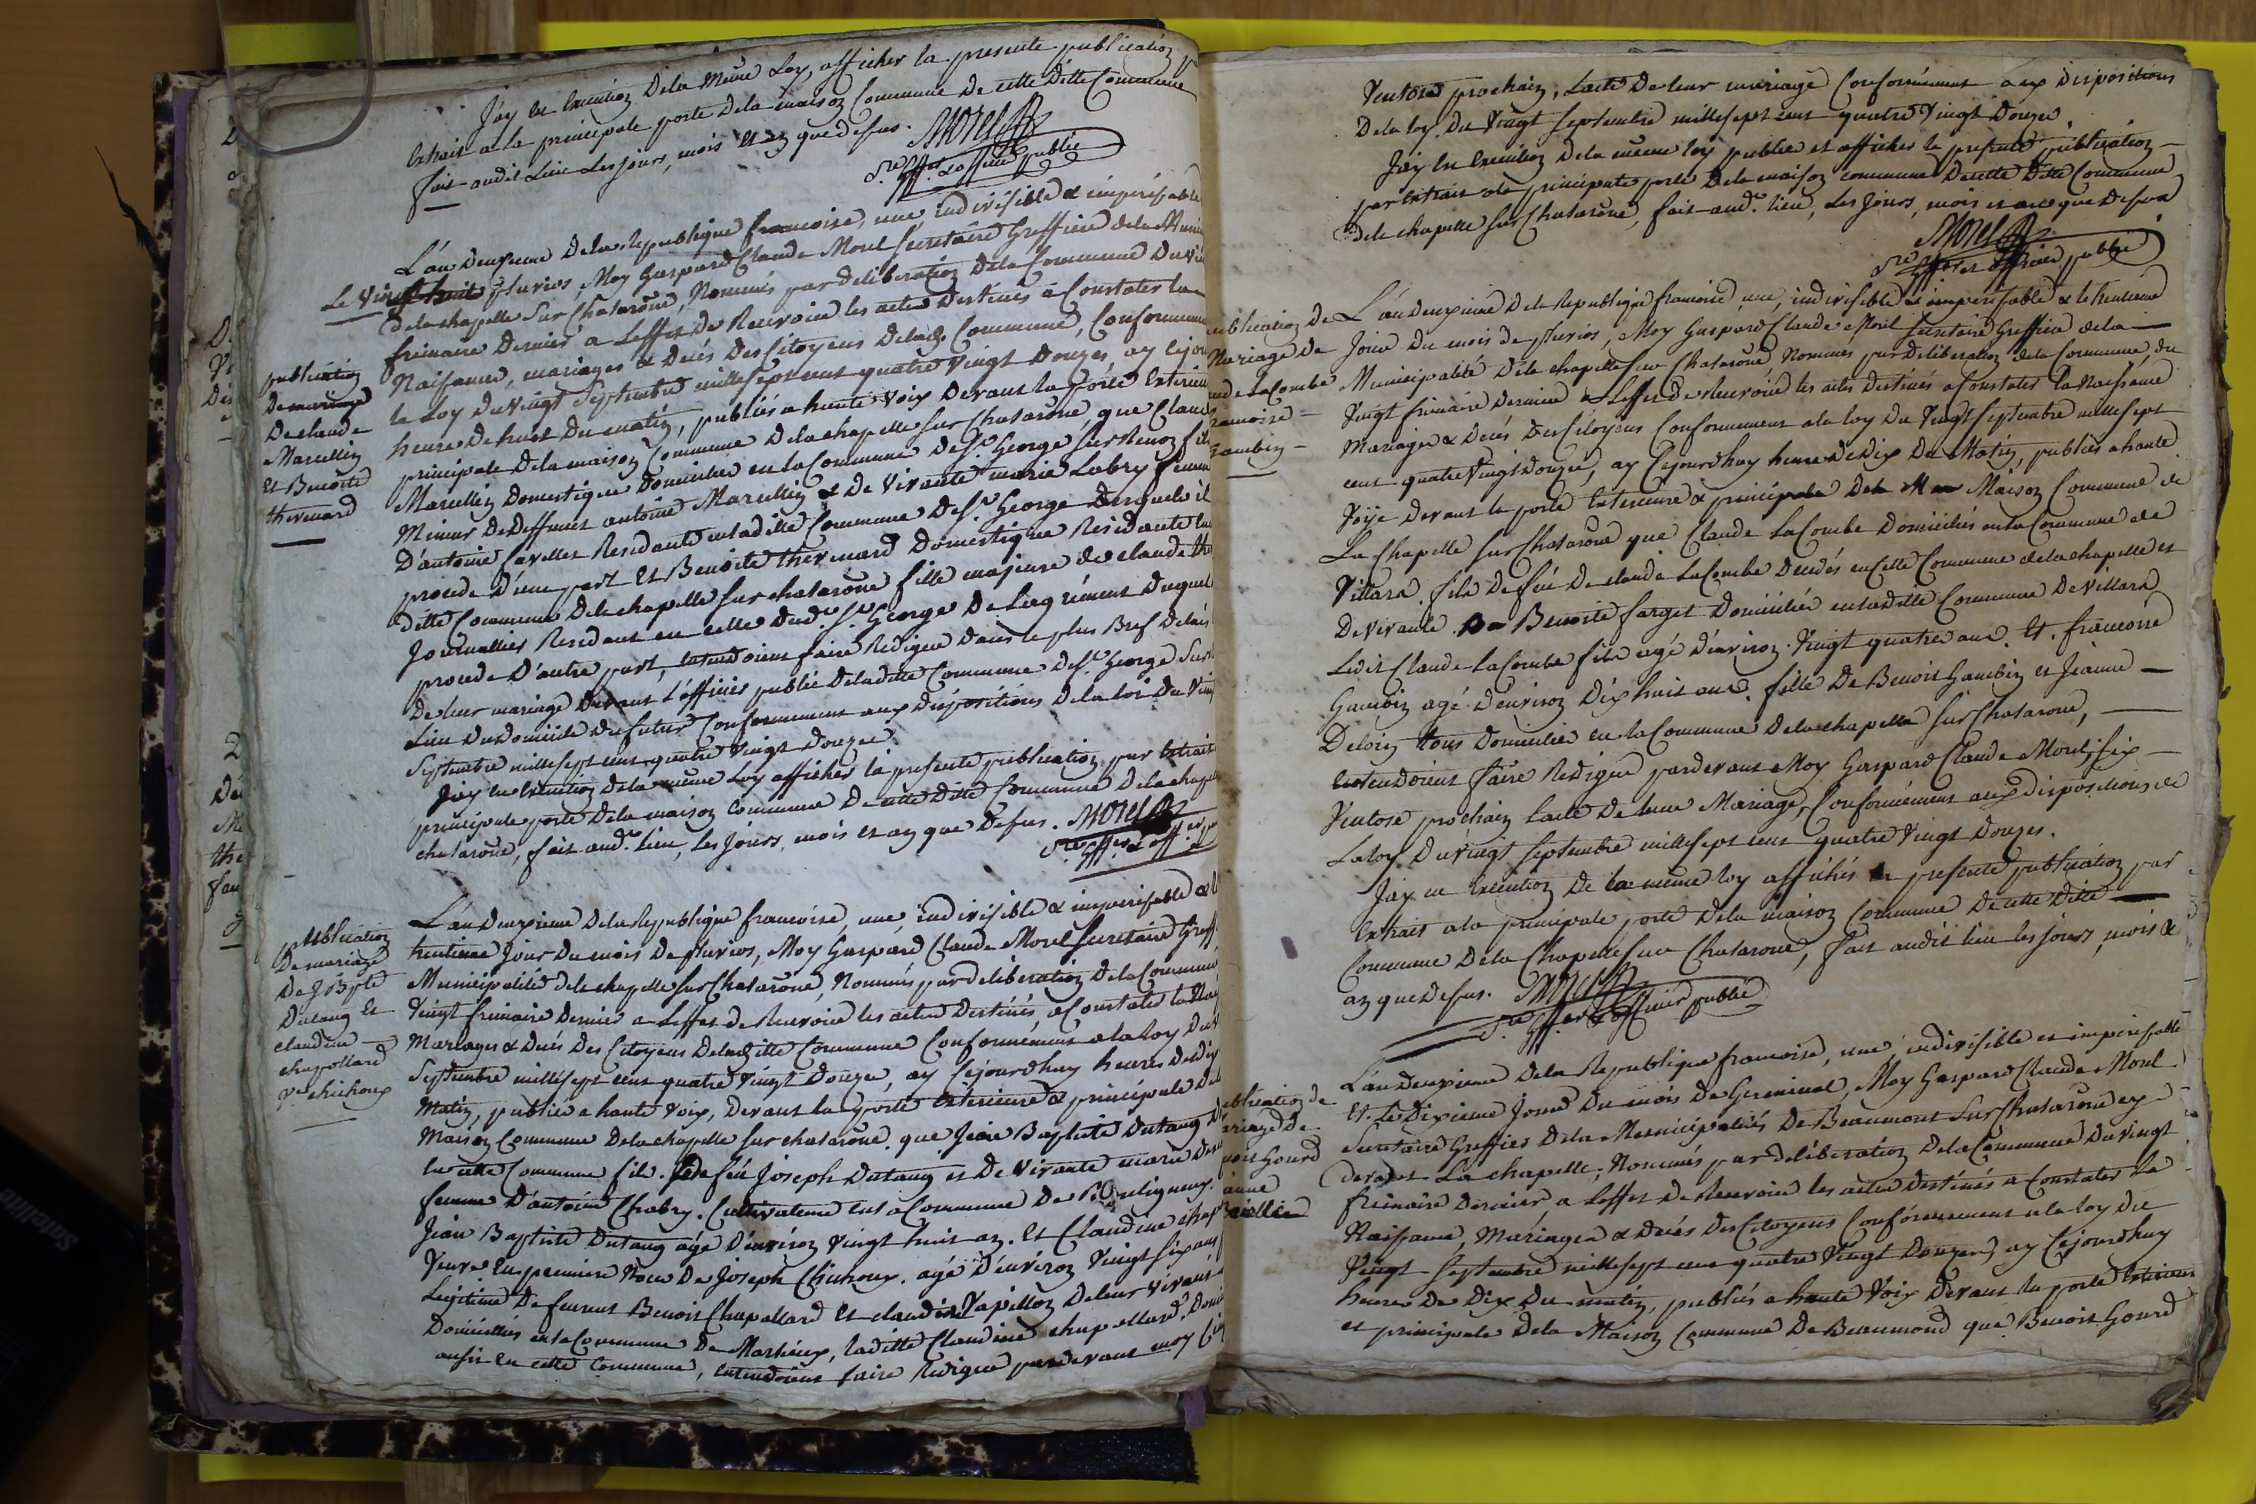 Jay en Execution Dela Meme Loy, afficher la presente publication p
Extrait a la principale porte Dela maison Commune De cette Ditte Commune
fait audit Lieu Les jours, mois et an que dessus. Morel
S.re Gff.er & officier public
L'an Deuxieme Dela Republique francoise, une indivisible & imperissable
Le Vingt huit pluvios Moy Gaspard Claude Morel Secretaire Greffier dela Muni
dela chapelle Sur Chatarone, Nommés par deliberation Dela Commune Du Vin
frimaire Dernier a Leffet De Recevoir les actes Destinés a Constater la
publication
De mariage
De claude
Marcellin
Et Benoite
thevenard
Naissance, mariages & Decés Des Citoyens Delad. Commune, Conformeme
le Loy Du Vingt Septembre mille sept cent quatre Vingt Douzes, ay cejou
heure De huit Du matin, publiés a haute Voix Devant la porte Exterieu
principale Dela maison Commune Dela chapelle Sur Chatarone, que Claud
Marcellin Domestique Domicilié en la Commune De St. George sur Renon fils
Mineur De Deffunct antoine Marcellin & De Vivante marie Labry femme
D'antoine Cavellet Residante en ladite Commune De St. George Desquels il
procede D'une part Et Benoite thevenard Domestique Residante en
ditte Commune Dela chapelle Sur chatarone fille majeure de claude the
Journallier Residant en celle dud. St. George De Luy rément Duquel
procede D'autre part, Entendoient faire Rediger Dans le plus Bref Delais
De leur mariage Devant L'officier public Deladitte Commune De St. George Sur
Lieu Du Domicile Du futur Conformement aux Dispositions De la loi Du Ving
Septembre mille sept cent quatre Vingt Douzes.
Jay en Execution Dela meme Loy afficher la presente publication par Extrait
principale porte Dela maison Commune De cette Ditte Commune Dela chapel
chatarone, fait aud. lieu, Les jours, mois et an que Dessus. Morel
S.re Gff.er & off.er p
publication
De mariage
De J. Bpte
Dutang Et
claudine
chapellard
v.e chichoux
L'an Deuxieme Dela Republique francoise, une indivisible & imperissable & le
trentieme jour Du mois De pluvios, Moy Gaspard Claude Morel Secretaire Greff
Municipalité dela chapelle Sur Chatarone, Nommés par deliberation Dela Commune
Vingt frimaire Dernier a Leffet de Recevoir les actes Destinés a Constater la Nai
Mariages & Decés Des Citoyens Deladitte Commune Conformément a la loy Du V
Septembre mille sept cent quatre Vingt Douzes, ay Cejourdhuy heures De dix
Matin, publiés a haute Voix, Devant la porte Exterieure & principale Dela
Maison Commune Dela chapelle Sur chatarone, que Jean Baptiste Dutang D
En cette Commune fils. De feu Joseph Dutang et De Vivante marie
femme D'antoine Chabry. Cultivateur en la Commune De
Jean Baptiste Dutang agé D'environ Vingt huit an. Et Claudine chap
Veuve En premiere Noce De Joseph Chichoux. agé D'environ Vingt six ans
Legitime De feurent Benoit Chapellard Et claudine Papillon De leur vivant
Domiciliés en la Commune De Marlieux, laditte Claudine chapellard. Domi
aussi En cette Commune, Entendoient faire Rediger pardevant moy
Ventose prochain, Lacte De leur mariage Conformément aux Dispositions
De la loy. Du Vingt Septembre mille sept cent quatre Vingt Douzes.
Jay En Execution De la meme loy publié et afficher la presente publication
par Extrait a la principale porte De la maison commune De cette Ditte Commune
dela chapelle Sur Chatarone, fait aud. lieu, Les jours, mois et an que Dessus
Morel
S.re Gff.er et officier public
ublication de
Mariage De
ude LaCombe
ancoise
Gambin
L'an deuxieme De la Republique francoise une, indivisible & imperissable & le trentieme
Jour Du mois de pluvios, Moy Gaspard Claude Morel Secretaire Greffier dela
Municipalité Dela chapelle Sur Chatarone Nommés par Deliberation Dela Commune, du
Vingt frimaire Dernier a Leffet de Recevoir les actes Destinés a Constater la Naissance
Mariages & Decés Des Citoyens Conformement a la loy Du Vingt Septembre mille sept
cent quatre Vingt Douzes, ay Cejourdhuy heure De Dix Du Matin, publiés a haute
Voije Devant la porte Exterieure & principale Dela Maison Commune de
La Chapelle Sur Chatarone que Claude LaCombe Domiciliés en la Commune de
Villars. fils De feu De claude LaCombe Decédés en Cette Commune de la chapelle et
De Vivante Benoite farget Domiciliée en ladite Commune De Villars
Ledit Claude LaCombe fils agé D'environ Vingt quatre ans. Et. francoise
Gambin agé D'environ Dix huit ans. fille De Benoit Gambin et Jeanne
Deloin tous Domicilié en la Commune De la chapelle Sur Chatarone,
Entendoient faire Rediger pardevant Moy Gaspard Claude Morel, six
Ventose prochain Lacte De leur Mariage, Conformément aux dispositions de
La loy. Du vingt Septembre mille sept cent quatre Vingt Douzes.
Jay en Execution De la meme loy affichés la presente publication par
Extrait a la principale porte Dela maison Commune De cette Ditte
Commune Dela Chapelle Sur Chatarone, fait audit lieu les jours, mois &
an que dessus. Morel
S.re Gff.er & officier public
ublication de
ariage De
noit Gourd
anne
L'an deuxieme Dela Republique francoise, une, indivisible et imperissable
Et Le Dixieme Jour Du mois De Germinal, Moy Gaspard Claude Morel
Secretaire Greffier Dela Municipalités De Beaumont Sur Chatarone ey
devant La chapelle, Nommés par deliberation Dela Commune Du vingt
frimaire Dernier, a Leffet De Recevoir les actes Destinés a Constater La
Naissance, Mariages & Decés Des Citoyens Conformement a la loy Du
Vingt Septembre mille sept cent quatre Vingt Douzes, ay Cejourdhuy
heure De Dix Du matin, publiés a haute Voix Devant la porte Exterieure
et principale Dela Maison Commune De Beaumond que Benoit Gourd